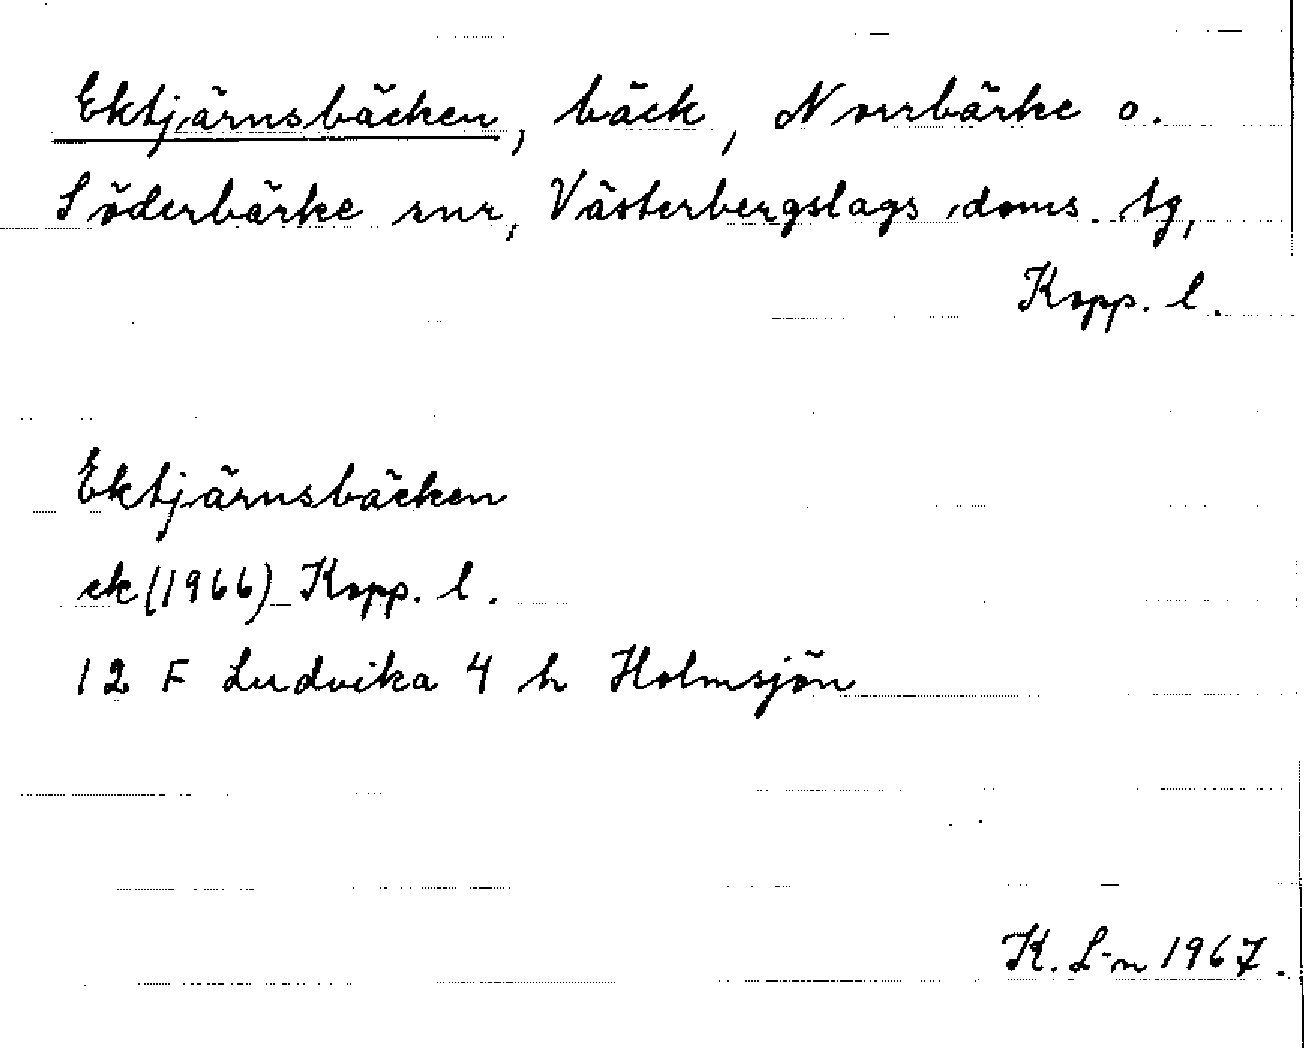 Ektjärnsbäcken, bäck, Norrbärke o.
Söderbärke snr, Västerbergslags doms. tg,
Kopp. l.
Ektjärnsbäcken
ek (1966) Kopp. l.
12 F Ludvika 4 h Holmsjön
K. L-n 1967.